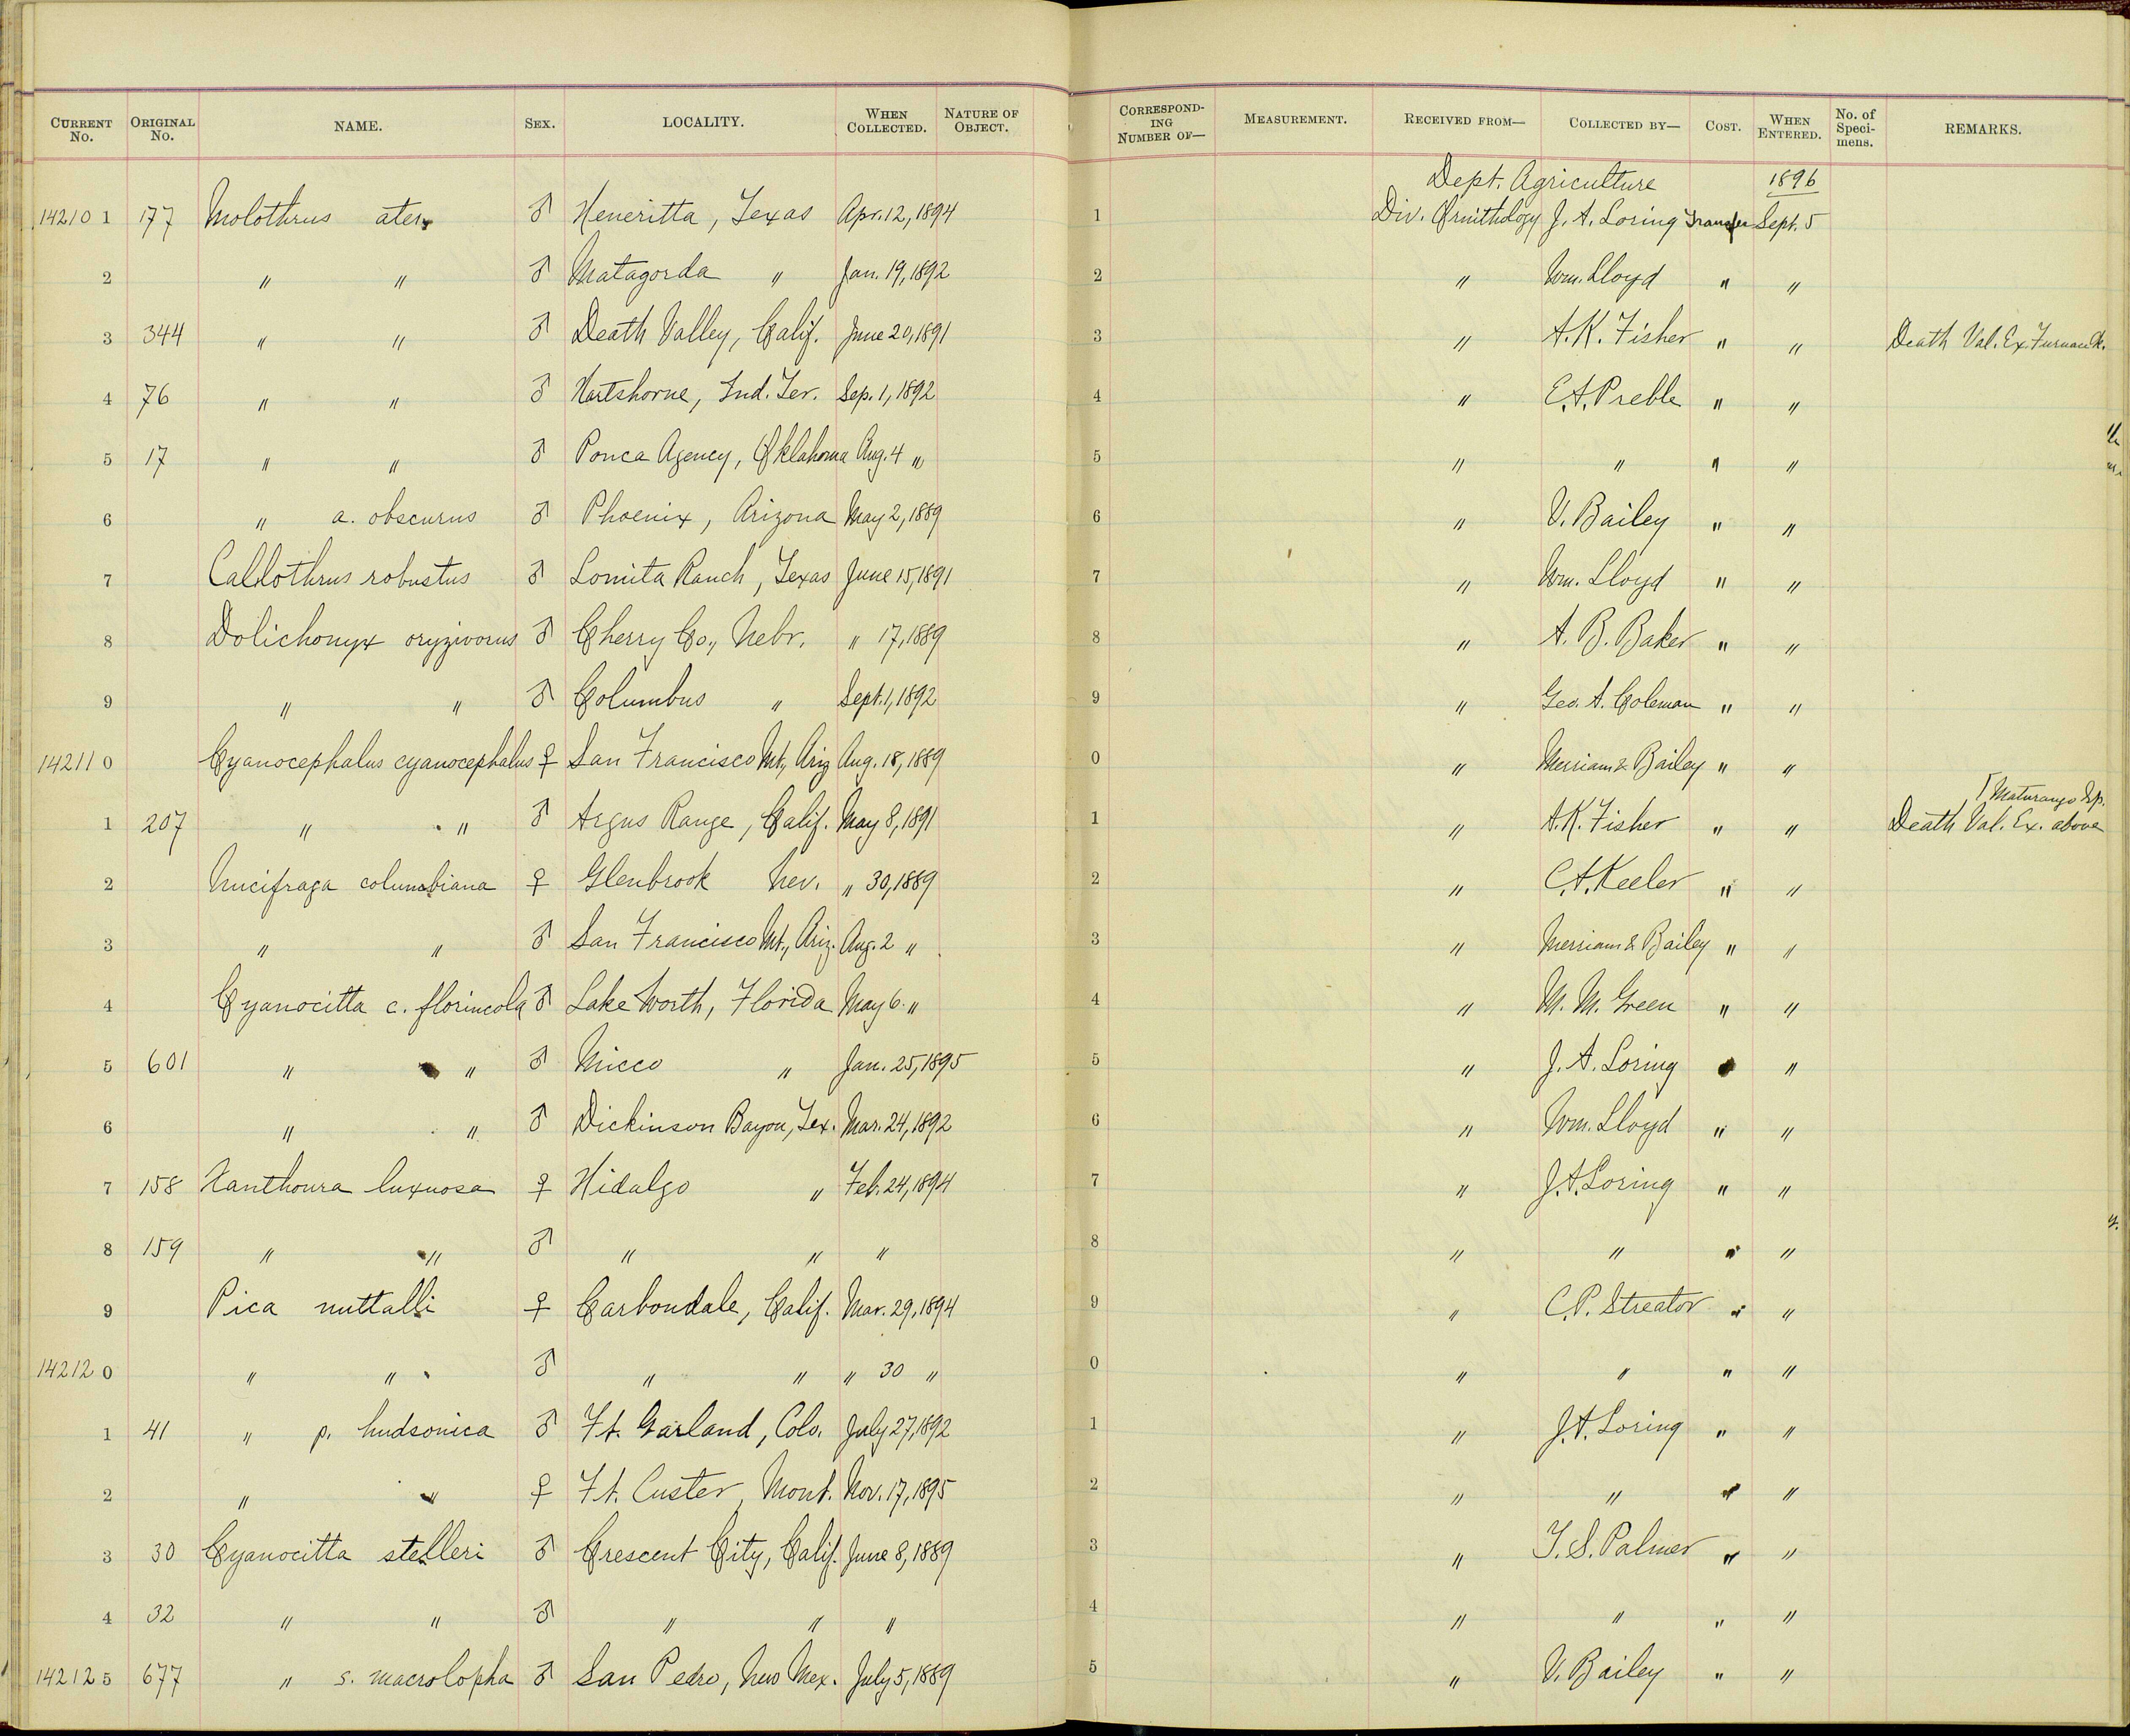 CURRENT No. ORIGINAL No. NAME. SEX. LOCALITY. WHEN COLLECTED. NATURE OF OBJECT. CORRESPONDING NUMBER OF— MEASUREMENT. RECEIVED FROM— COLLECTED BY— COST. WHEN ENTERED. No. of Specimens. REMARKS.
Dept. Agriculture 1896
142101 177 Molothrus ater ♂ Heneritta, Texas Apr. 12, 1894 1 Div. Ornithology J. A. Loring Transfer Sept. 5
2 " " ♂ Matagorda " Jan. 19, 1892 2 " Wm. Lloyd " "
3 344 " " ♂ Death Valley, Calif. June 20, 1891 3 " A. K. Fisher " " Death Val. Ex. Furnace Ck.
4 76 " " ♂ Hartshorne, Ind. Ter. Sep. 1, 1892 4 " E. A. Preble " "
5 17 " " ♂ Ponca Agency, Oklahoma Aug. 4 " 5 " " " "
6 " a. obscurus ♂ Phoenix, Arizona May 2, 1889 6 " V. Bailey " "
7 Callothrus robustus ♂ Lomita Ranch, Texas June 15, 1891 7 " Wm. Lloyd " "
8 Dolichonyx oryzivorus ♂ Cherry Co., Nebr. " 17, 1889 8 " A. B. Baker " "
9 " " ♂ Columbus " Sept. 1, 1892 9 " Geo. A. Coleman " "
142110 Cyanocephalus cyanocephalus ♀ San Francisco Mt., Ariz Aug. 18, 1889 0 " Merriam & Bailey " "
Maturango Sp.
1 207 " " ♂ Argus Range, Calif. May 8, 1891 1 " A. K. Fisher " " Death Val. Ex. above
2 Nucifraga columbiana ♀ Glenbrook Nev. " 30, 1889 2 " C. A. Keeler " "
3 " " ♂ San Francisco Mt., Ariz. Aug. 2 " 3 " Merriam & Bailey " "
4 Cyanocitta c. florincola ♂ Lake Worth, Florida May 6 " 4 " M. M. Green " "
5 601 " " ♂ Micco " Jan. 25, 1895 5 " J. A. Loring " "
6 " " ♂ Dickinson Bayou, Tex. Mar. 24, 1892 6 " Wm. Lloyd " "
7 158 Xanthoura luxuosa ♀ Hidalgo " Feb. 24, 1894 7 " J. A. Loring " "
8 159 " " ♂ " " " 8 " " " "
9 Pica nuttalli ♀ Carbondale, Calif. Mar. 29, 1894 9 " C. P. Streator " "
142120 " " ♂ " " " 30 " 0 " " " "
1 41 " p. hudsonica ♂ Ft. Garland, Colo. July 27, 1892 1 " J. A. Loring " "
2 " " ♀ Ft. Custer, Mont. Nov. 17, 1895 2 " " " "
3 30 Cyanocitta stelleri ♂ Crescent City, Calif. June 8, 1889 3 " T. S. Palmer " "
4 32 " " ♂ " " " 4 " " " "
142125 677 " s. macrolopha ♂ San Pedro, New Mex. July 5, 1889 5 " V. Bailey " "